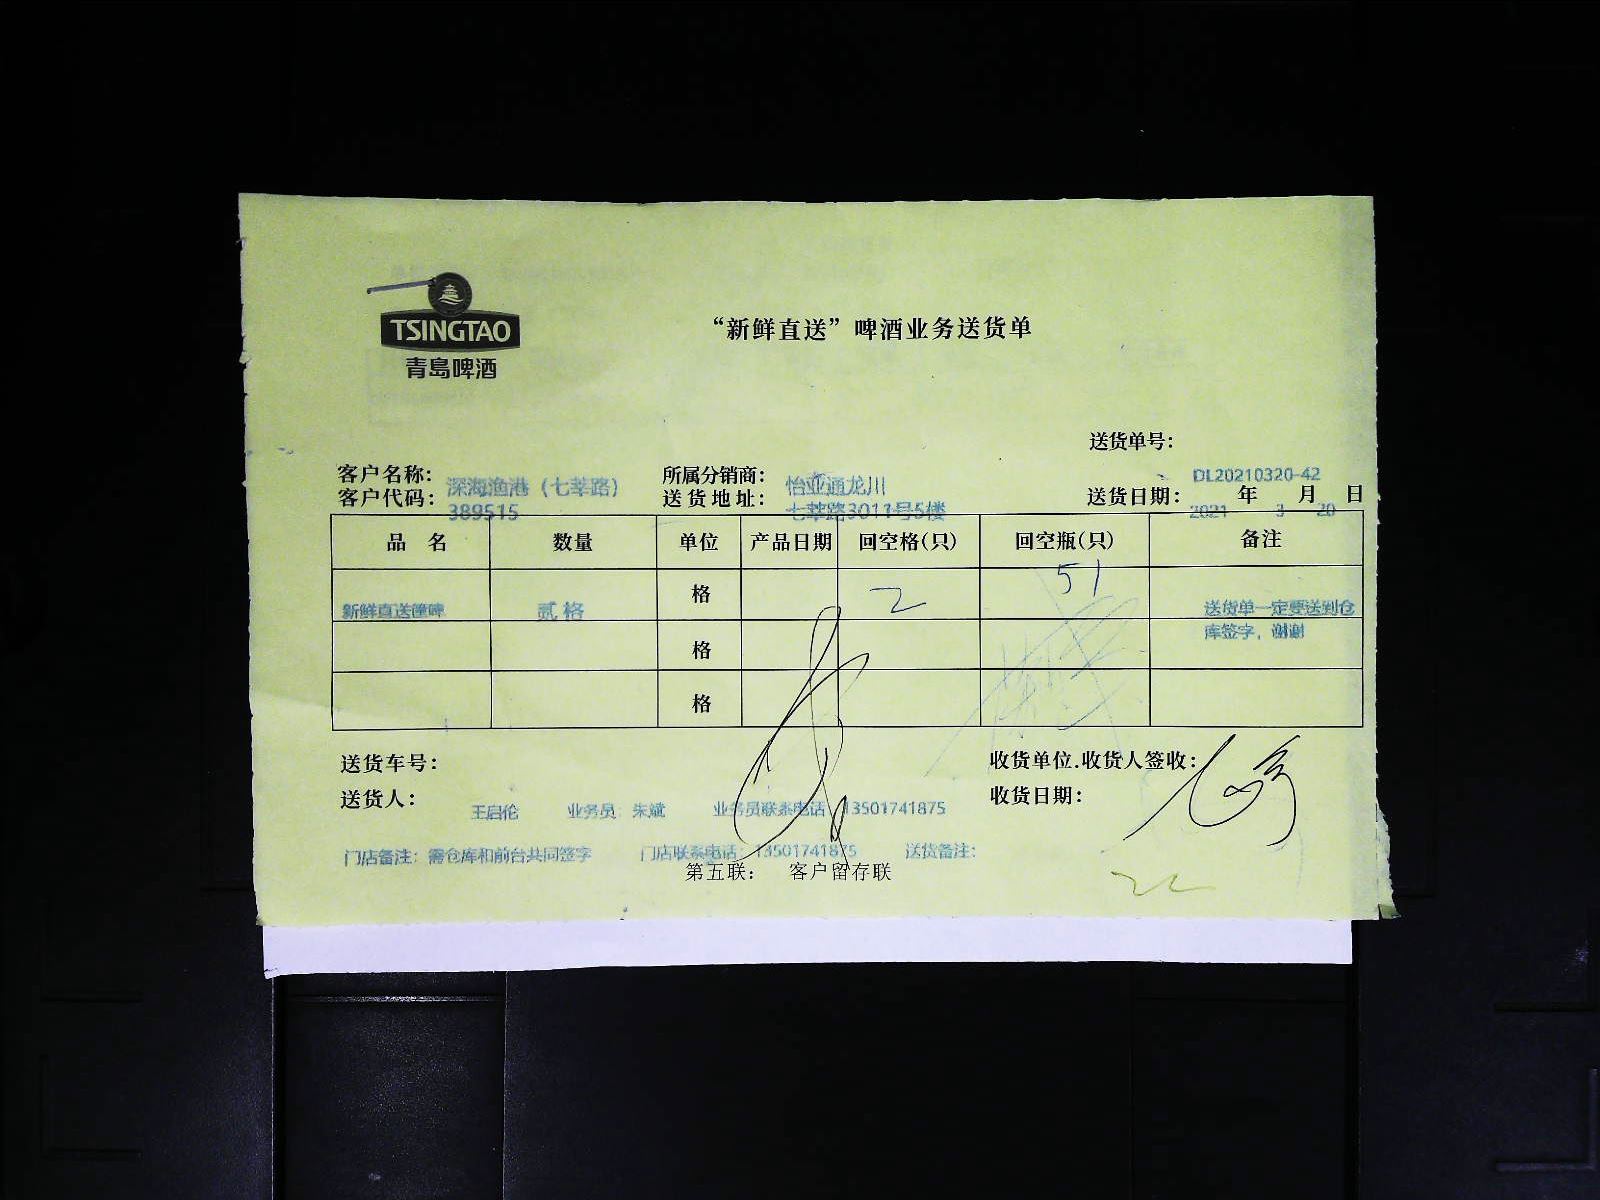 TSINGTAO
青岛啤酒
“新鲜直送”啤酒业务送货单
送货单号: DL20210320-42
客户名称: 深海渔港（七莘路） 所属分销商: 怡亚通龙川
客户代码: 389515 送货地址: 七莘路3011号5楼 送货日期: 2021年3月20日
品名 数量 单位 产品日期 回空格(只) 回空瓶(只) 备注
新鲜直送箽啤 贰格 格 2 51 送货单一定要送到仓
库签字，谢谢
格
格
送货车号: 收货单位.收货人签收:
送货人: 王启伦 业务员: 朱斌 业务员联系电话 13501741875 收货日期:
门店备注: 需仓库和前台共同签字 门店联系电话: 13501741875 送货备注:
第五联: 客户留存联